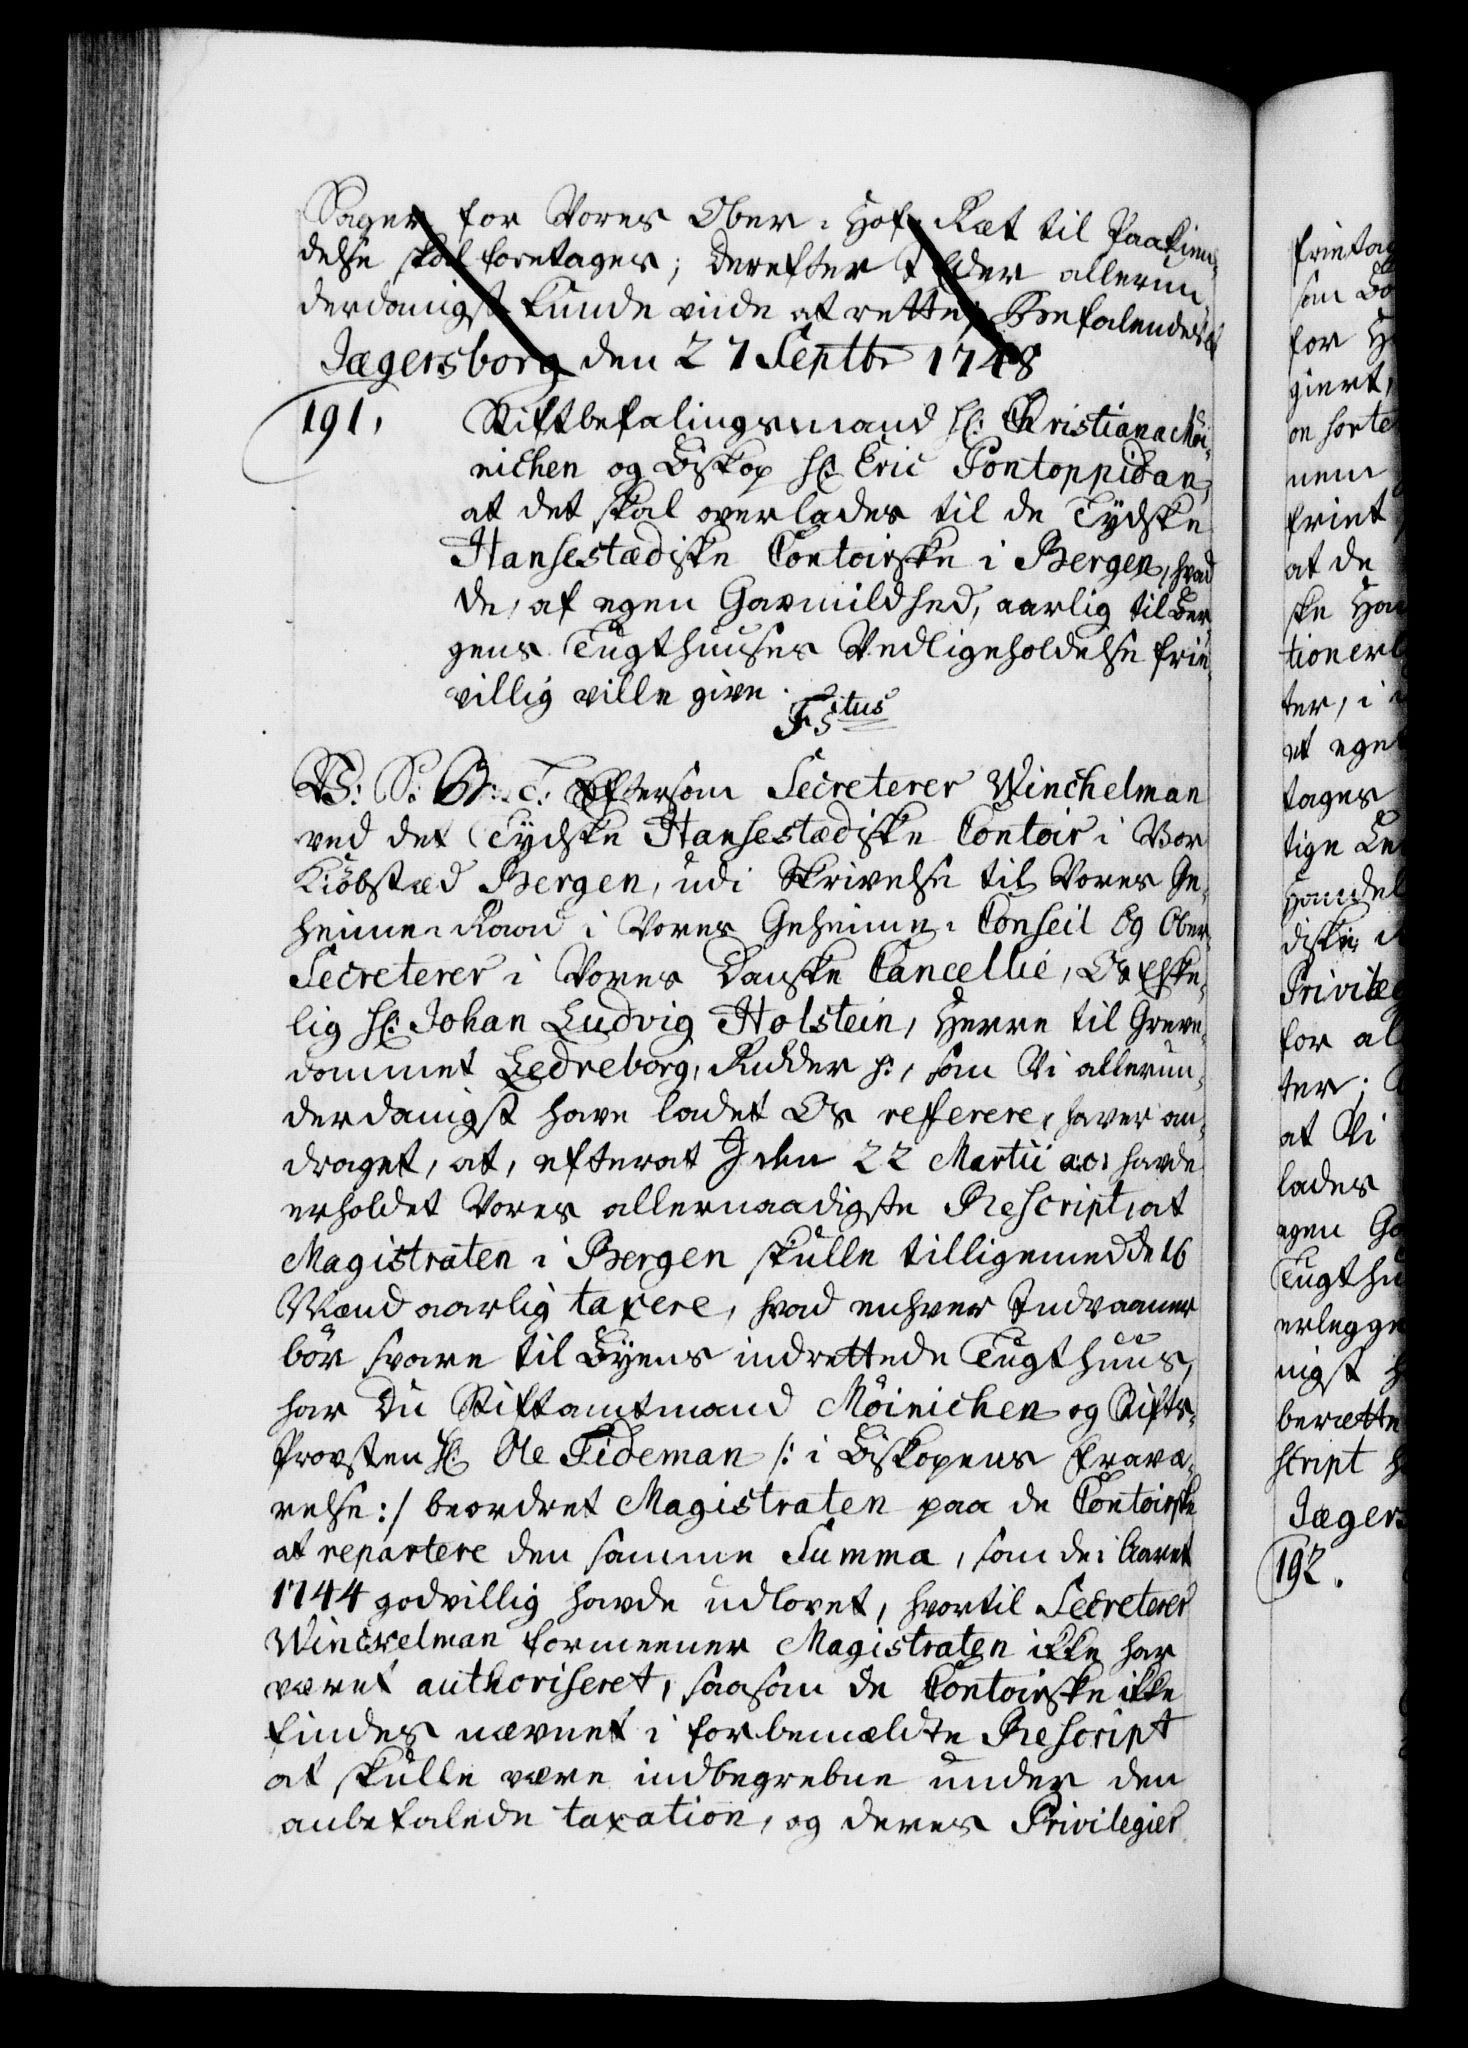 Sager for Vores Ober-Hof-Ræt til Paakien-
delse skal foretages; derefter I Eder allerun-
derdanigst kunde viide at rette, Befalendes ꝛc
Jægersborg den 27 Septbr 1748
191, Stiftbefalingsmand Hr: Christian Möi-
nichen og Biskop Hr: Eric Pontoppidan,
at det skal overlades til de Tydske
Hansestædiske Contoirske i Bergen, hvad
de, af egen Gavmildhed, aarlig til Ber-
gens Tugthuuses Vedligeholdelse frie-
villig ville give.
Fs itus
V: S: G: T: Eftersom Secreterer Winchelman
ved det Tydske Hansestædiske Contoir i Vor
Kiöbstæd Bergen, udi Skrivelse til Vores Ge-
heime-Raad i Vores Geheime-Conseil og Ober-
Secreterer i Vores Danske Cancellie, Os Elske-
lig Hr: Johan Ludvig Holstein, Herre til Greve-
dommet Ledreborg, Ridder p:, som Vi allerun-
derdanigst have ladet Os refferere, haver an-
draget, at, efterat I den 22 Martii a.c: havde
erholdet Vores allernaadigste Rescript, at
Magistraten i Bergen skulle tilligemed de 16
Mænd aarlig taxere, hvad enhver Indvaaner
bör svare til Byens indrettede Tugthuus,
har Du Stiftamtmand Möinichen og Stifts-
Provsten Hr: Ole Tideman /: i Biskopens fravæ-
relse :/ beordret Magistraten paa de Contoirske
at repartere den samme Summa, som de i Aaret
1744 godvillig havde udlovet, hvortil Secreterer
Winckelman formeener Magistraten ikke har
været authoriseret, saasom de Contoirske ikke
findes nævnet i forbemældte Rescript
at skulle være indbegrebne under den
anbefalede taxation, og deres Privilegier
frietag
som Bo
for H
giert,
nem
friet
at de
ske Han
tionerl
ter, i
et ege
tages
tige Le
Handel
diske
Privileg
for al
ter;
at Vi
lades
egen Ga
Tugthu
erlegge
nigst
berætte
script
Jægers
192.